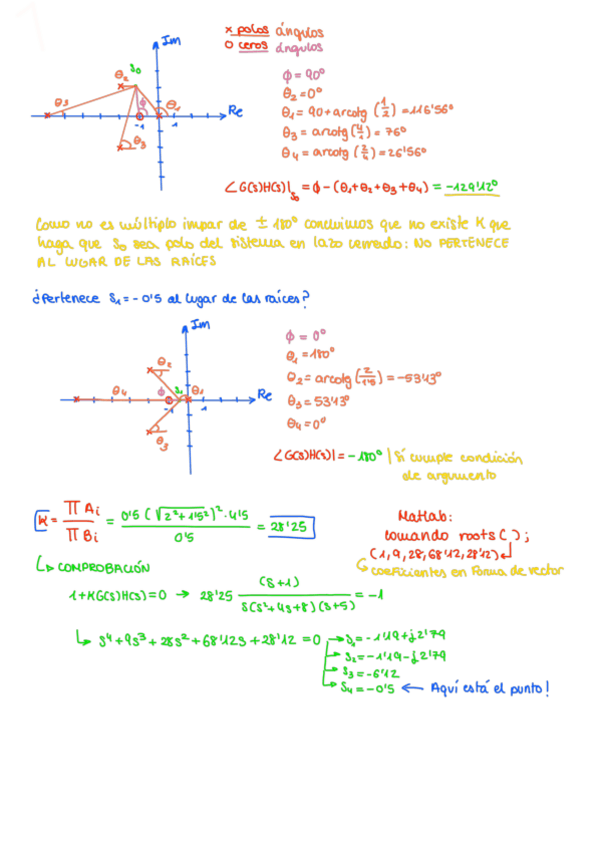 x polos ángulos
o ceros ángulos
Im
θ2 S0
θ3 ϕ θ1 Re
-1 1
θ3
ϕ = 90º
θ2 = 0º
θ1 = 90 + arcotg (1/2) = 116'56º
θ3 = arcotg (4/1) = 76º
θ4 = arcotg (2/4) = 26'56º
∠G(s)H(s)|S0 = ϕ - (θ1 + θ2 + θ3 + θ4) = -129'12º
Como no es múltiplo impar de ± 180º concluimos que no existe K que
haga que S0 sea polo del sistema en lazo cerrado: NO PERTENECE
AL LUGAR DE LAS RAÍCES
¿Pertenece S1 = -0'5 al lugar de las raíces?
Im
θ2
θ4 ϕ S1 θ1 Re
-1 1
θ3
ϕ = 0º
θ1 = 180º
θ2 = arcotg (2/1'5) = -53'43º
θ3 = 53'43º
θ4 = 0º
∠G(s)H(s)| = -180º | Sí cumple condición
de argumento
K = ∏ Ai / ∏ Bi = 0'5 (√2² + 1'5²)² · 4'5 / 0'5 = 28'25
Matlab:
comando roots( );
(1, 9, 28, 68'12, 28'12)
coeficientes en forma de vector
COMPROBACIÓN
1 + KG(s)H(s) = 0 → 28'25 (s+1) / s(s² + 4s + 8)(s+5) = -1
s⁴ + 9s³ + 28s² + 68'12s + 28'12 = 0 → S1 = -1'19 + j2'79
S2 = -1'19 - j2'79
S3 = -6'12
S4 = -0'5 ← Aquí está el punto!